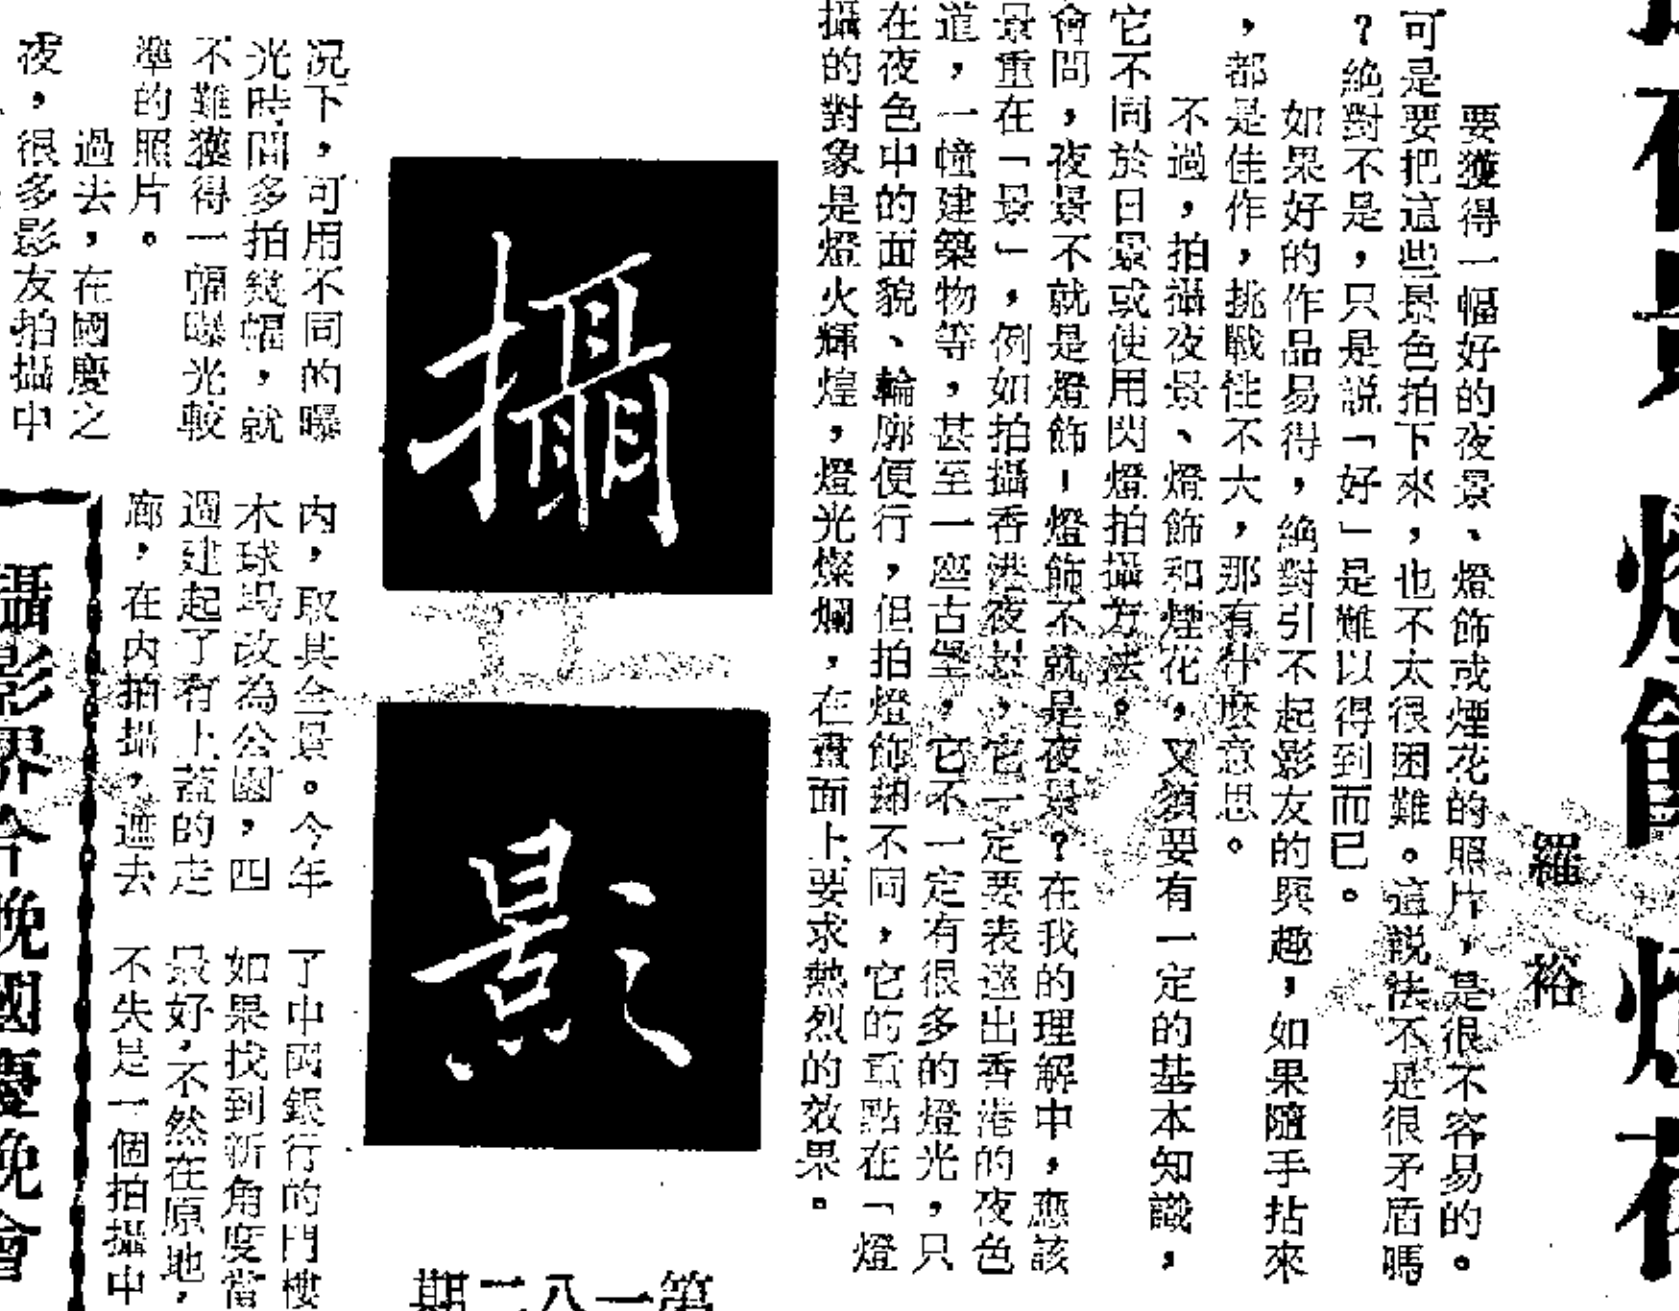 燈飾
羅裕
要獲得一幅好的夜景、燈飾或煙花的照片，是很不容易的。
可是要把這些景色拍下來，也不太很困難。這説法不是很矛盾嗎
？絶對不是，只是説「好」是難以得到而已。
如果好的作品易得，絶對引不起影友的興趣，如果隨手拈來
，都是佳作，挑戰性不大，那有什麽意思。
不過，拍攝夜景、燈飾和煙花，又須要有一定的基本知識，
它不同於日景或使用閃燈拍攝方法。
會問，夜景不就是燈飾！燈飾不就是夜景？在我的理解中，應該
景重在「景」，例如拍攝香港夜景，它一定要表達出香港的夜色
道，一幢建築物等，甚至一座古堡，它不一定有很多的燈光，只
在夜色中的面貌、輪廓便行，但拍燈飾却不同，它的重點在「燈
攝的對象是燈火輝煌，燈光燦爛，在畫面上要求熱烈的效果。
攝影
第一八二期
况下，可用不同的曝
光時間多拍幾幅，就
不難獲得一幅曝光較
準的照片。
過去，在國慶之
夜，很多影友拍攝中
内，取其全景。今年
木球塲改為公園，四
週建起了有上蓋的走
廊，在内拍攝，遮去
了中國銀行的門樓
如果找到新角度當
最好，不然在原地，
不失是一個拍攝中
攝影界今晚國慶晚會